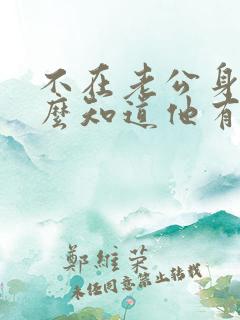 不在老公身
麼知道他有
鄭維荣
未经同意禁止转载